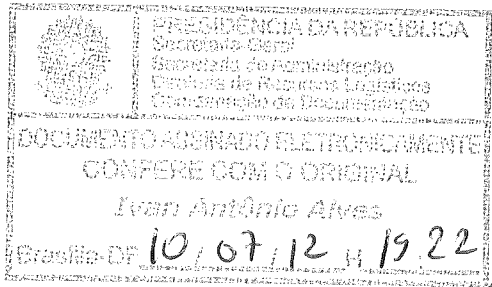 PRESIDÊNCIA DA REPÚBLICA
Secretaria-Geral
Secretaria de Administração
Diretoria de Recursos Logísticos
Coordenação de Documentação
DOCUMENTO ASSINADO ELETRONICAMENTE
CONFERE COM O ORIGINAL
Ivan Antônio Alves
Brasília-DF 10/07/12 H 19:22